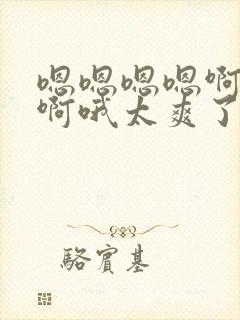 嗯嗯嗯嗯啊
啊哦太爽了
骆宾基